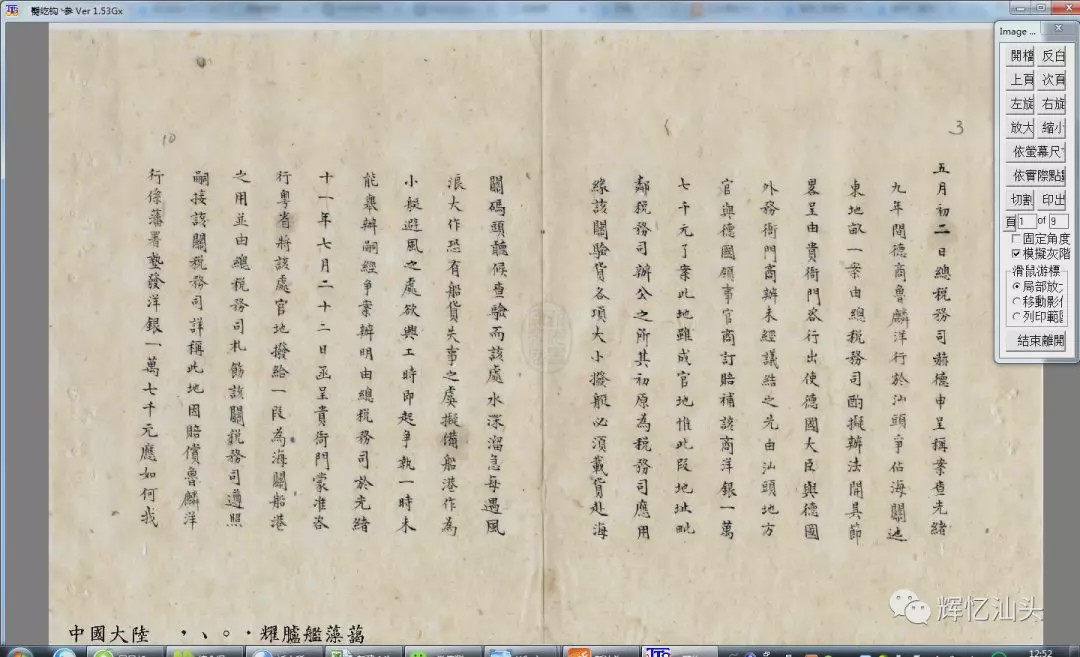 Ver 1.53Gx
Image ...
開檔 反白
上頁 次頁
左旋 右旋
放大 縮小
依螢幕尺寸
依實際點
切割 印出
頁 1 of 9
固定角度
模擬灰階
滑鼠游標
局部放大
移動影像
列印範圍
結束離開
3
10
五月初二日總稅務司赫德申呈稱案查光緒
九年間德商魯麟洋行於汕頭爭佔海關
東地畝一案由總稅務司酌擬辦法開具節
畧呈由貴衙門咨行出使德國大臣與德國
外務衙門商辦未經議結之先由汕頭地方
官與德國領事官商訂賠補該商洋銀一萬
七千元了案此地雖成官地惟此段地址毗
鄰稅務司辦公之所其初原為稅務司應用
緣該關驗貨各項大小撥船必須載貨赴海
關碼頭聽候查驗而該處水深溜急每遇風
浪大作恐有船貨失事之虞擬備船港作為
小艇避風之處欲興工時即起爭執一時未
能舉辦嗣經爭案辦明由總稅務司於光緒
十一年七月二十二日函呈貴衙門蒙准咨
行粵省將該處官地撥給一段為海關船港
之用並由總稅務司札飭該關稅務司遵照
嗣接該關稅務司詳稱此地因賠償魯麟洋
行係藩署墊發洋銀一萬七千元應如何我
中國大陸 ，、。．耀臚艦藻藹
辉忆汕头
12:52